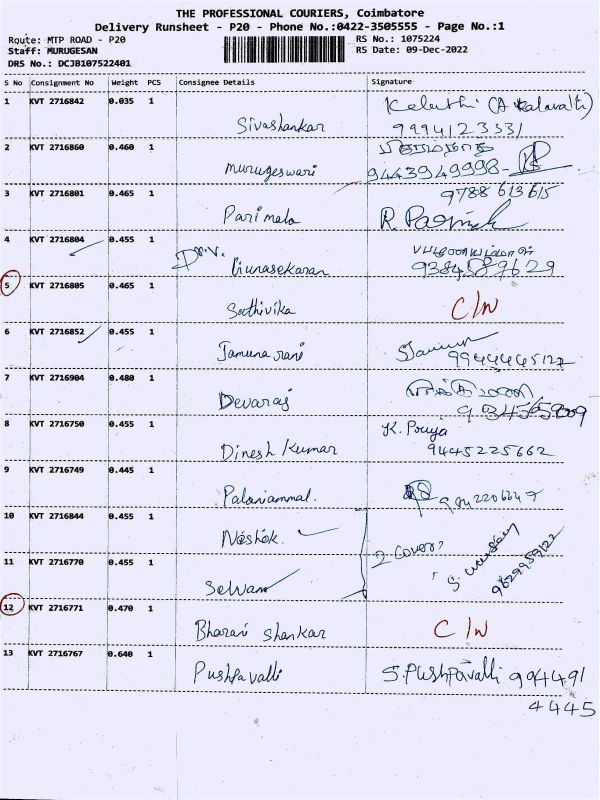 THE PROFESSIONAL COURIERS, Coimbatore
Delivery Runsheet - P20 - Phone No.:0422-3505555 - Page No.:1
Route: MTP ROAD - P20 RS No.: 1075224
Staff: MURUGESAN RS Date: 09-Dec-2022
DRS No.: DCJB107522401
S No Consignment No Weight PCS Consignee Details Signature
1 KVT 2716842 0.035 1
Sivashankar 9994123331
2 KVT 2716860 0.460 1
Murugeswari 9443949998
3 KVT 2716801 0.465 1 9788613615
Parimala R.
4 KVT 2716804 0.455 1
Dr.V. Gunasekaran 9384589629
5 KVT 2716805 0.465 1
Sathivika C/N
6 KVT 2716852 0.455 1
Jamuna rani 99444445127
7 KVT 2716904 0.480 1
Devaraj
8 KVT 2716750 0.455 1 K. Pouja
Dinesh Kumar 9445225662
9 KVT 2716749 0.445 1
Palaniammal.
10 KVT 2716844 0.455 1
Nashok. 2 cover,
11 KVT 2716770 0.455 1
Selvam S. 9629959122
12 KVT 2716771 0.470 1
Bharani Shankar C/N
13 KVT 2716767 0.640 1
Pushpavalli S.Pushpavalli 994491
4445